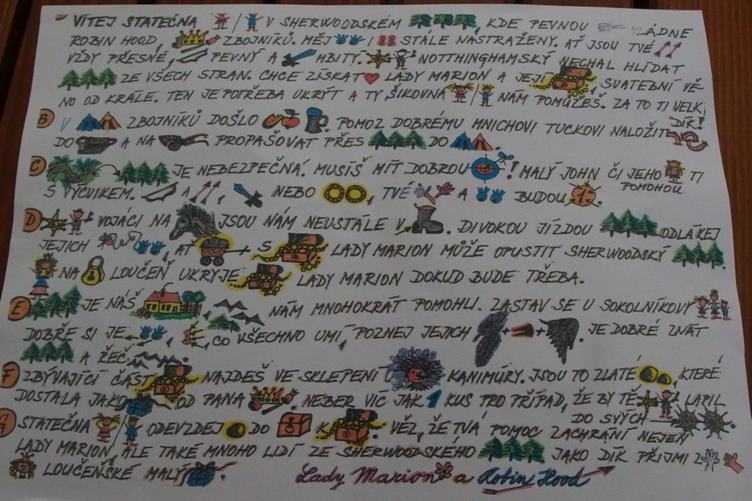 VÍTEJ STATEČNÁ / V SHERWOODSKÉM , KDE PEVNOU VLÁDNE
ROBIN HOOD, ZBOJNÍKŮ. MĚJ I STÁLE NASTRAŽENY. AŤ JSOU TVÉ
VŽDY PŘESNÉ, PEVNÝ A HBITÝ. NOTTHINGHAMSKÝ NECHAL HLÍDAT
ZE VŠECH STRAN. CHCE ZÍSKAT LADY MARION A JEJÍ SVATEBNÍ VĚ-
NO OD KRÁLE. TEN JE POTŘEBA UKRÝT A TY ŠIKOVNÁ / NÁM POMŮŽEŠ. ZA TO TI VELKÝ
DÍK!
B V ZBOJNÍKŮ DOŠLO A . POMOZ DOBRÉMU MNICHOVI TUCKOVI NALOŽIT
DO A NA PROPAŠOVAT PŘES DO
C JE NEBEZPEČNÁ. MUSÍŠ MÍT DOBROU ! MALÝ JOHN ČI JEHO TI
POMOHOU
S VÝCVIKEM. A , NEBO , TVÉ A BUDOU 1.
D VOJÁCI NA JSOU NÁM NEUSTÁLE V . DIVOKOU JÍZDOU ODLÁKEJ
JEJICH , AŤ S LADY MARION MŮŽE OPUSTIT SHERWOODSKÝ .
NA LOUČEN UKRYJE LADY MARION DOKUD BUDE TŘEBA.
E JE NÁŠ . NÁM MNOHOKRÁT POMOHLI. ZASTAV SE U SOKOLNÍKOVÝ
DOBŘE SI JE , CO VŠECHNO UMÍ, POZNEJ JEJICH + . JE DOBRÉ ZNÁT
A ŘEČ .
F ZBÝVAJÍCÍ ČÁST NAJDEŠ VE SKLEPENÍ U KANIMÚRY. JSOU TO ZLATÉ , KTERÉ
DOSTALA JAKO OD PANA . NEBER VÍC JAK 1 KUS PRO PŘÍPAD, ŽE BY TĚ LAPIL
DO SVÝCH
G STATEČNÁ / ODEVZDEJ DO K . VĚZ, ŽE TVÁ POMOC ZACHRÁNÍ NEJEN
LADY MARION, ALE TAKÉ MNOHO LIDÍ ZE SHERWOODSKÉHO . JAKO DÍK PŘIJMI Z
LOUČENSKÉ MALÝ .
Lady Marion a Robin Hood